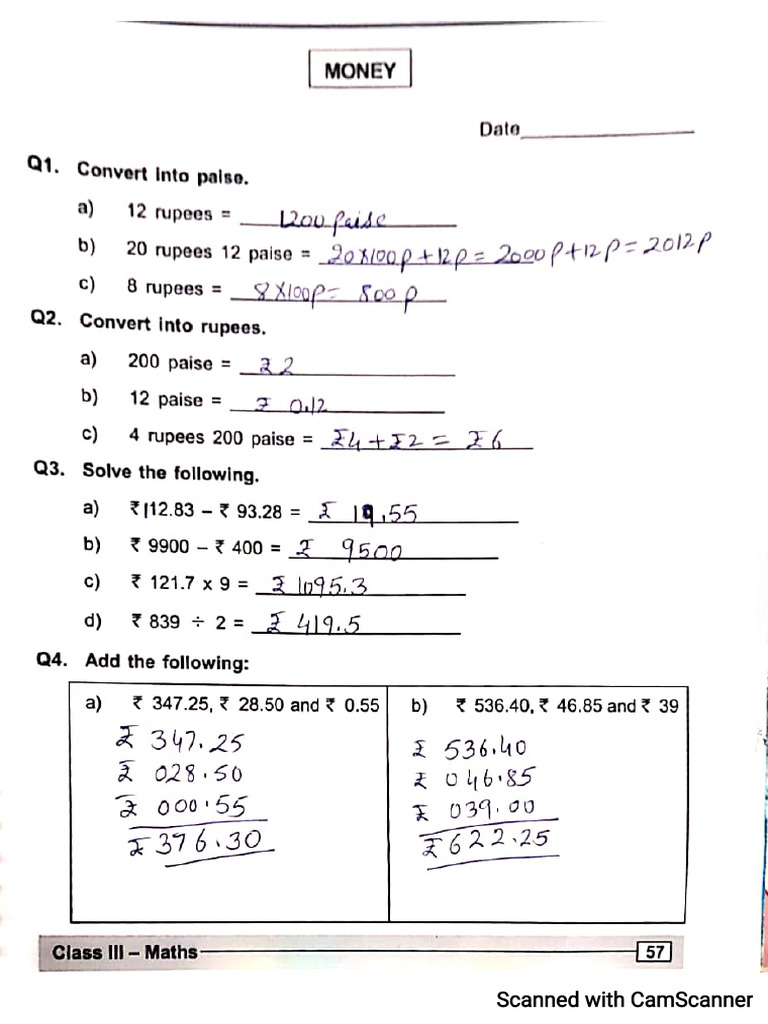 MONEY
Date
Q1. Convert into paise.
a) 12 rupees = 1200 paise
b) 20 rupees 12 paise = 20x100p + 12p = 2000p + 12p = 2012p
c) 8 rupees = 8x100p = 800p
Q2. Convert into rupees.
a) 200 paise = ₹2
b) 12 paise = ₹ 0.12
c) 4 rupees 200 paise = ₹4 + ₹2 = ₹6
Q3. Solve the following.
a) ₹112.83 – ₹ 93.28 = ₹ 19.55
b) ₹ 9900 – ₹ 400 = ₹ 9500
c) ₹ 121.7 x 9 = ₹1095.3
d) ₹ 839 ÷ 2 = ₹ 419.5
Q4. Add the following:
a) ₹ 347.25, ₹ 28.50 and ₹ 0.55
₹ 347.25
₹ 028.50
₹ 000.55
₹ 376.30
b) ₹ 536.40, ₹ 46.85 and ₹ 39
₹ 536.40
₹ 046.85
₹ 039.00
₹ 622.25
Class III – Maths 57
Scanned with CamScanner